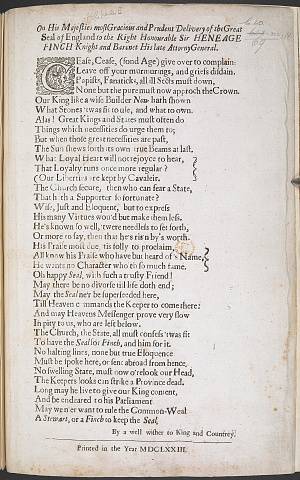 On His Majesties most Gracious and Prudent Delivery of the Great
Seal of England to the Right Honourable Sir HENEAGE
FINCH Knight and Baronet His late Attorny General.
CEase, Cease, (fond Age) give over to complain:
Leave off your murmurings, and griefs disdain.
Papists, Fanaticks, all ill Sects must down,
None but the pure must now approch the Crown.
Our King like a wise Builder Now hath shown
What Stones 'twas fit to use, and what to own.
Alas! Great Kings and States must often do
Things which necessities do urge them to;
But when those great necessities are past,
The Sun shews forth its own true Beams at last.
What Loyal Heart will not rejoyce to hear,
That Loyalty runs once more regular?
(Our Liberties are kept by Cavaleir.
The Church secure, then who can fear a State,
That hath a Supporter so fortunate?
Wise, Just and Eloquent, but to express
His many Virtues wou'd but make them less.
He's known so well, 'twere needless to set forth,
Or more to say, then that he's ris'n by's worth.
His Praise most due, tis folly to proclaim,
All know his Praise who have but heard of's Name,
He wants no Character who is so much fame.
Oh happy Seal, with such a trusty Friend!
May there be no divorse till life doth end;
May the Seal ne'r be superseeded here,
Till Heaven commands the Keeper to come there:
And may Heavens Messenger prove very slow
In pity to us, who are left below.
The Church, the State, all must confess 'twas fit
To have the Seal for Finch, and him for it.
No halting lines, none but true Eloquence
Must be spoke here, or sent abroad from hence,
No swelling State, must now o'relook our Head,
The Keepers looks can strike a Province dead.
Long may he live to give our King content,
And be endeared to his Parliament
May we ne'er want to rule the Common-Weal
A Stewart, or a Finch to keep the Seal,
By a well wisher to King and Countrey.
Printed in the Year MDCLXXIII.